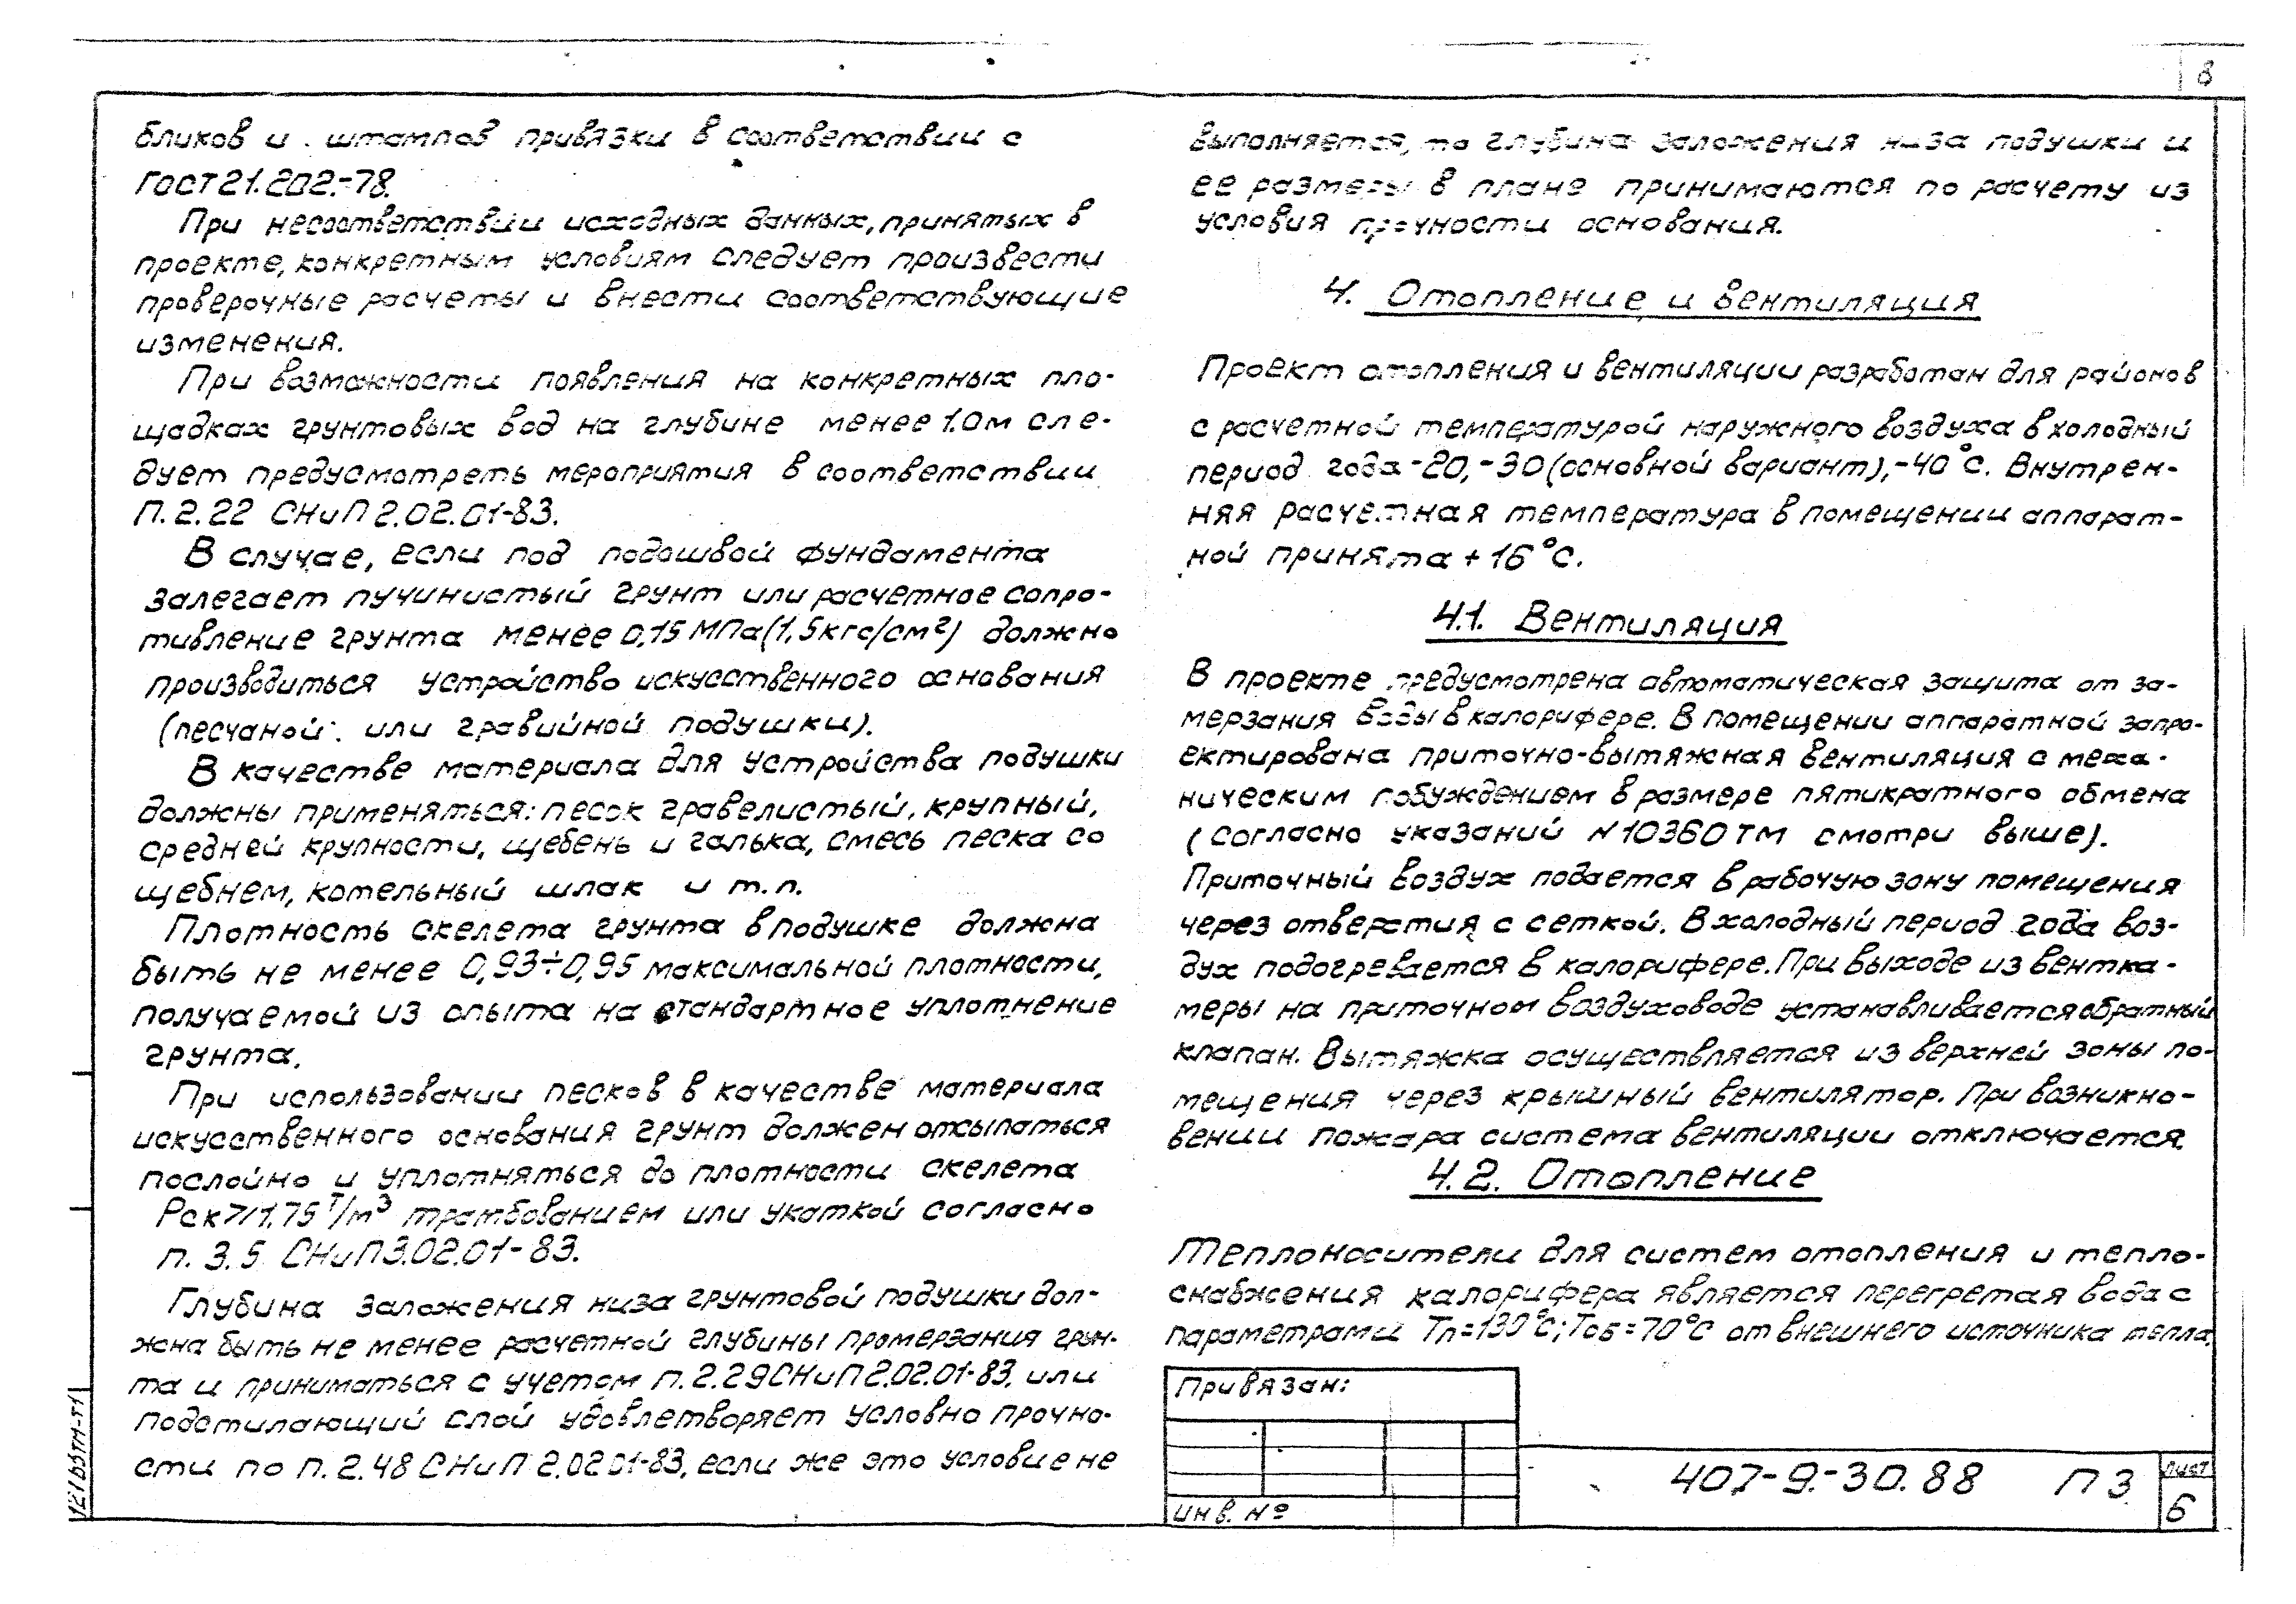 8
бликов и штампов привязки в соответствии с
ГОСТ 21.202.-78.
При несоответствии исходных данных, принятых в
проекте, конкретным условиям следует произвести
проверочные расчеты и внести соответствующие
изменения.
При возможности появления на конкретных пло-
щадках грунтовых вод на глубине менее 1.0м сле-
дует предусмотреть мероприятия в соответствии
П. 2.22 СНиП 2.02.01-83.
В случае, если под подошвой фундамента
залегает пучинистый грунт или расчетное сопро-
тивление грунта менее 0,15 МПа (1,5кгс/см²) должно
производиться устройство искусственного основания
(песчаной или гравийной подушки).
В качестве материала для устройства подушки
должны применяться: песок гравелистый, крупный,
средней крупности, щебень и галька, смесь песка со
щебнем, котельный шлак и т.п.
Плотность скелета грунта в подушке должна
быть не менее 0,93÷0,95 максимальной плотности,
получаемой из опыта на стандартное уплотнение
грунта.
При использовании песков в качестве материала
искусственного основания грунт должен отсыпаться
послойно и уплотняться до плотности скелета
Рск≥1.75 т/м³ трамбованием или укаткой согласно
п. 3.5 СНиП3.02.01-83.
Глубина заложения низа грунтовой подушки дол-
жна быть не менее расчетной глубины промерзания грун-
та и приниматься с учетом п. 2.29 СНиП 2.02.01-83, или
подстилающий слой удовлетворяет условно прочно-
сти по п. 2.48 СНиП 2.02.01-83, если же это условие не
выполняется, то глубина заложения низа подушки и
ее размеры в плане принимаются по расчету из
условия прочности основания.
4. Отопление и вентиляция
Проект отопления и вентиляции разработан для районов
с расчетной температурой наружного воздуха в холодный
период года -20, -30 (основной вариант), -40°С. Внутрен-
няя расчетная температура в помещении аппарат-
ной принята +16°С.
4.1. Вентиляция
В проекте предусмотрена автоматическая защита от за-
мерзания воды в калорифере. В помещении аппаратной запро-
ектирована приточно-вытяжная вентиляция с меха-
ническим побуждением в размере пятикратного обмена
(согласно указаний N 10360ТМ смотри выше).
Приточный воздух подается в рабочую зону помещения
через отверстия с сеткой. В холодный период года воз-
дух подогревается в калорифере. При выходе из вентка-
меры на приточном воздуховоде устанавливается обратный
клапан. Вытяжка осуществляется из верхней зоны по-
мещения через крышный вентилятор. При возникно-
вении пожара система вентиляции отключается.
4.2. Отопление
Теплоносители для систем отопления и тепло-
снабжения калорифера является перегретая вода с
параметрами Тп=130°С; Тоб=70°С от внешнего источника тепла.
Привязан:
Инв. №
407-9-30.88 ПЗ
Лист
6
12165ТМ-Т1